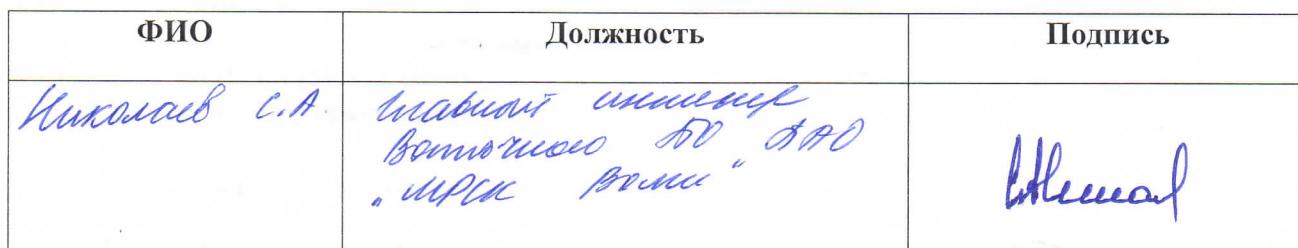 ФИО Должность Подпись
Николаев С.А. Главный инженер
Восточного ПО ПАО
"МРСК Волги"